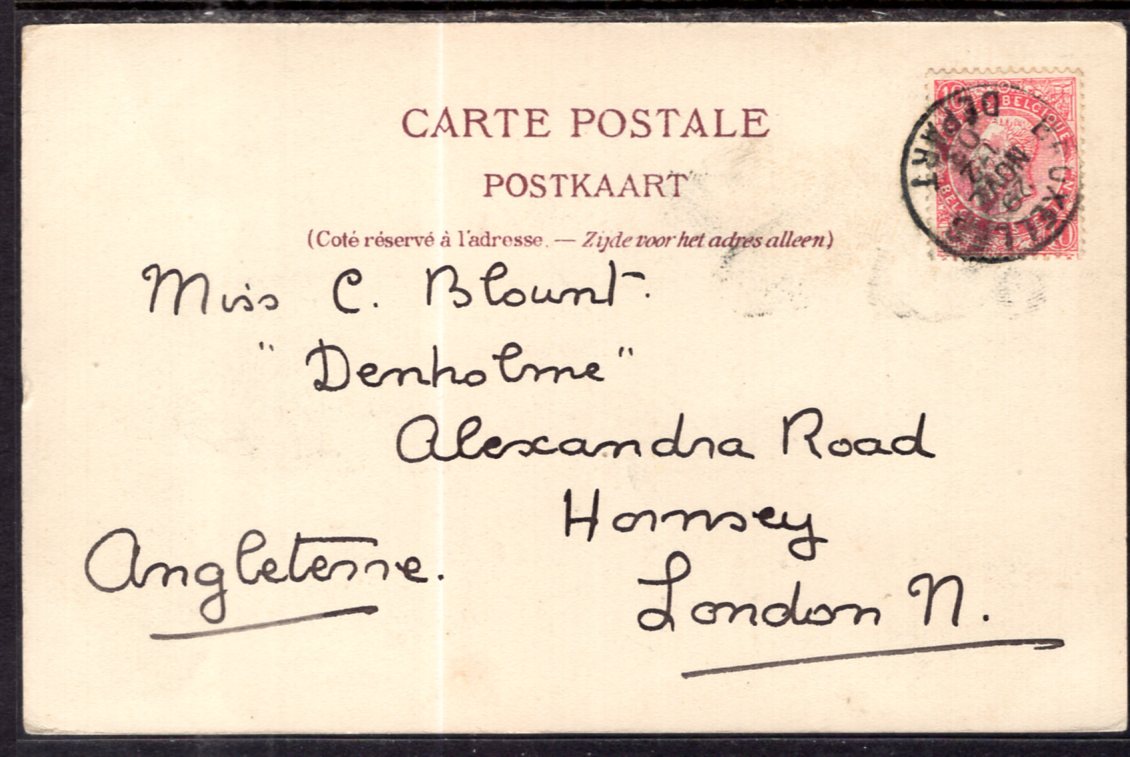 CARTE POSTALE
POSTKAART
(Coté réservé à l'adresse. — Zijde voor het adres alleen)
Miss C. Blount.
"Denholme"
Alexandra Road
Hornsey
London N.
Angleterre.
BRUXELLES
DÉPART
NOV
BELGIQUE